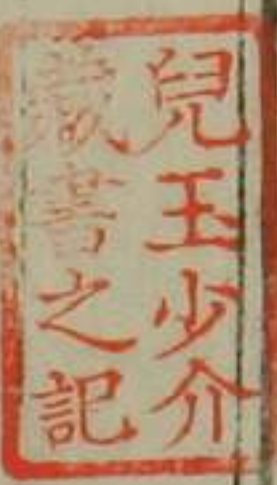 兒玉少介
藏書之記